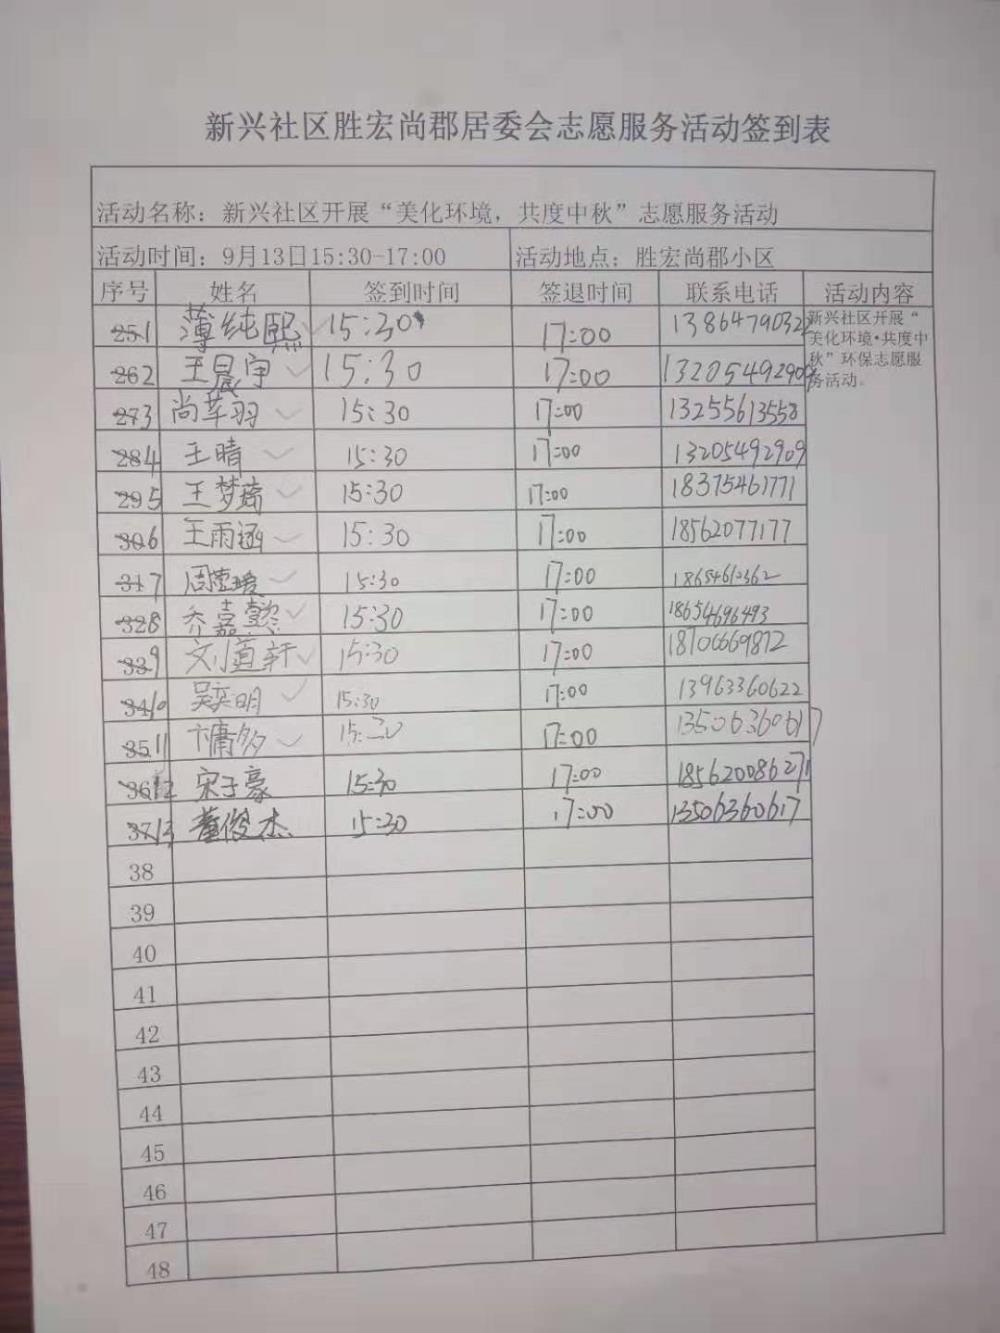 新兴社区胜宏尚郡居委会志愿服务活动签到表
活动名称：新兴社区开展“美化环境，共度中秋”志愿服务活动
活动时间：9月13日15:30-17:00 活动地点：胜宏尚郡小区
序号 姓名 签到时间 签退时间 联系电话 活动内容
251 薄纯熙 15:30 17:00 1386479032 新兴社区开展“
美化环境·共度中
秋”环保志愿服
务活动。
262 王晨宇 15:30 17:00 13205492909
273 尚莘羽 15:30 17:00 13255613558
284 王晴 15:30 17:00 13205492909
295 王梦琦 15:30 17:00 18375461771
306 王雨涵 15:30 17:00 18562077177
317 15:30 17:00
328 乔嘉懿 15:30 17:00 18654696493
339 刘道轩 15:30 17:00 18706669872
3410 吴奕明 15:30 17:00 13963360622
3511 15:30 17:00 13506360617
3612 宋子豪 15:30 17:00 18562008627
3713 董俊杰 15:30 17:00 13506360617
38
39
40
41
42
43
44
45
46
47
48